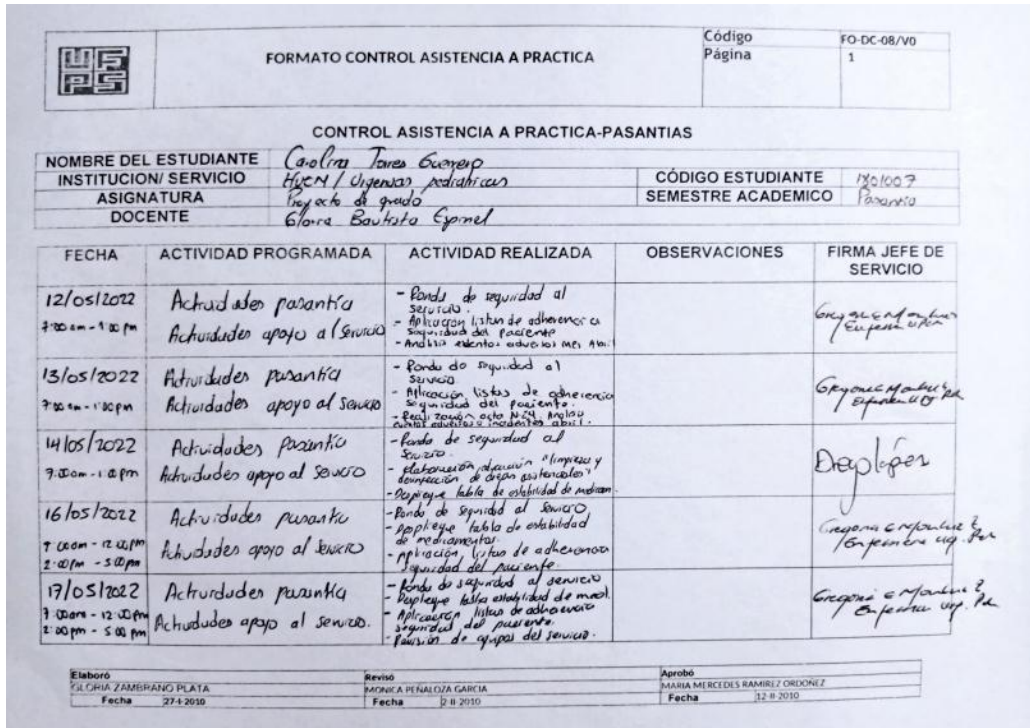 UFPS
FORMATO CONTROL ASISTENCIA A PRACTICA
Código FO-DC-08/V0
Página 1
CONTROL ASISTENCIA A PRACTICA-PASANTIAS
NOMBRE DEL ESTUDIANTE Carolina Torres Guerrero
INSTITUCION/ SERVICIO HUEM / Urgencias pediatricas
CÓDIGO ESTUDIANTE 1801007
ASIGNATURA Proyecto de grado
SEMESTRE ACADEMICO Pasantia
DOCENTE Gloria Bautista Espinel
FECHA ACTIVIDAD PROGRAMADA ACTIVIDAD REALIZADA OBSERVACIONES FIRMA JEFE DE
SERVICIO
12/05/2022
7:00 am - 1:00 pm
Actividades pasantía
Actividades apoyo al Servicio
- Ronda de seguridad al
servicio.
- Aplicacion listas de adherencia
seguridad del paciente
- Analisis eventos adversos mes Abril
13/05/2022
7:00 am - 1:00 pm
Actividades pasantía
Actividades apoyo al Servicio
- Ronda de seguridad al
servicio.
- Aplicación, listas de adherencia
seguridad del paciente.
- Realización acta Nº 4, Analisis
eventos adversos e incidentes abril.
14/05/2022
7:00am - 1:00pm
Actividades Pasantía
Actividades apoyo al Servicio
- Ronda de seguridad al
Servicio.
- elaboración "limpieza y
desinfección de áreas asistenciales"
- Despliegue tabla de estabilidad de medicam.
16/05/2022
7:00am - 12:00pm
2:00pm - 5:00pm
Actividades pasantía
Actividades apoyo al servicio
- Ronda de seguridad al servicio
- Despliegue tabla de estabilidad
de medicamentos.
- Aplicación, listas de adherencia
seguridad del paciente.
17/05/2022
7:00am - 12:00pm
2:00pm - 5:00pm
Actividades pasantía
Actividades apoyo al servicio.
- Ronda de seguridad al servicio
- Despliegue tabla estabilidad de med.
- Aplicación listas de adherencia
seguridad del paciente.
- Revisión de equipos del servicio.
Elaboró
GLORIA ZAMBRANO PLATA
Fecha 27-I-2010
Revisó
MONICA PEÑALOZA GARCIA
Fecha 2-II-2010
Aprobó
MARIA MERCEDES RAMIREZ ORDOÑEZ
Fecha 12-II-2010